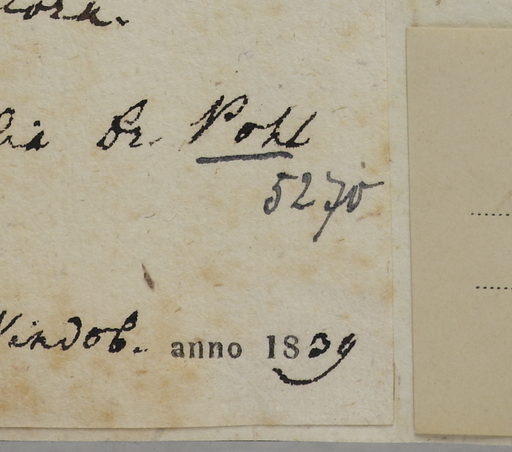 Dr. Pohl
5270
Vindob. anno 1839